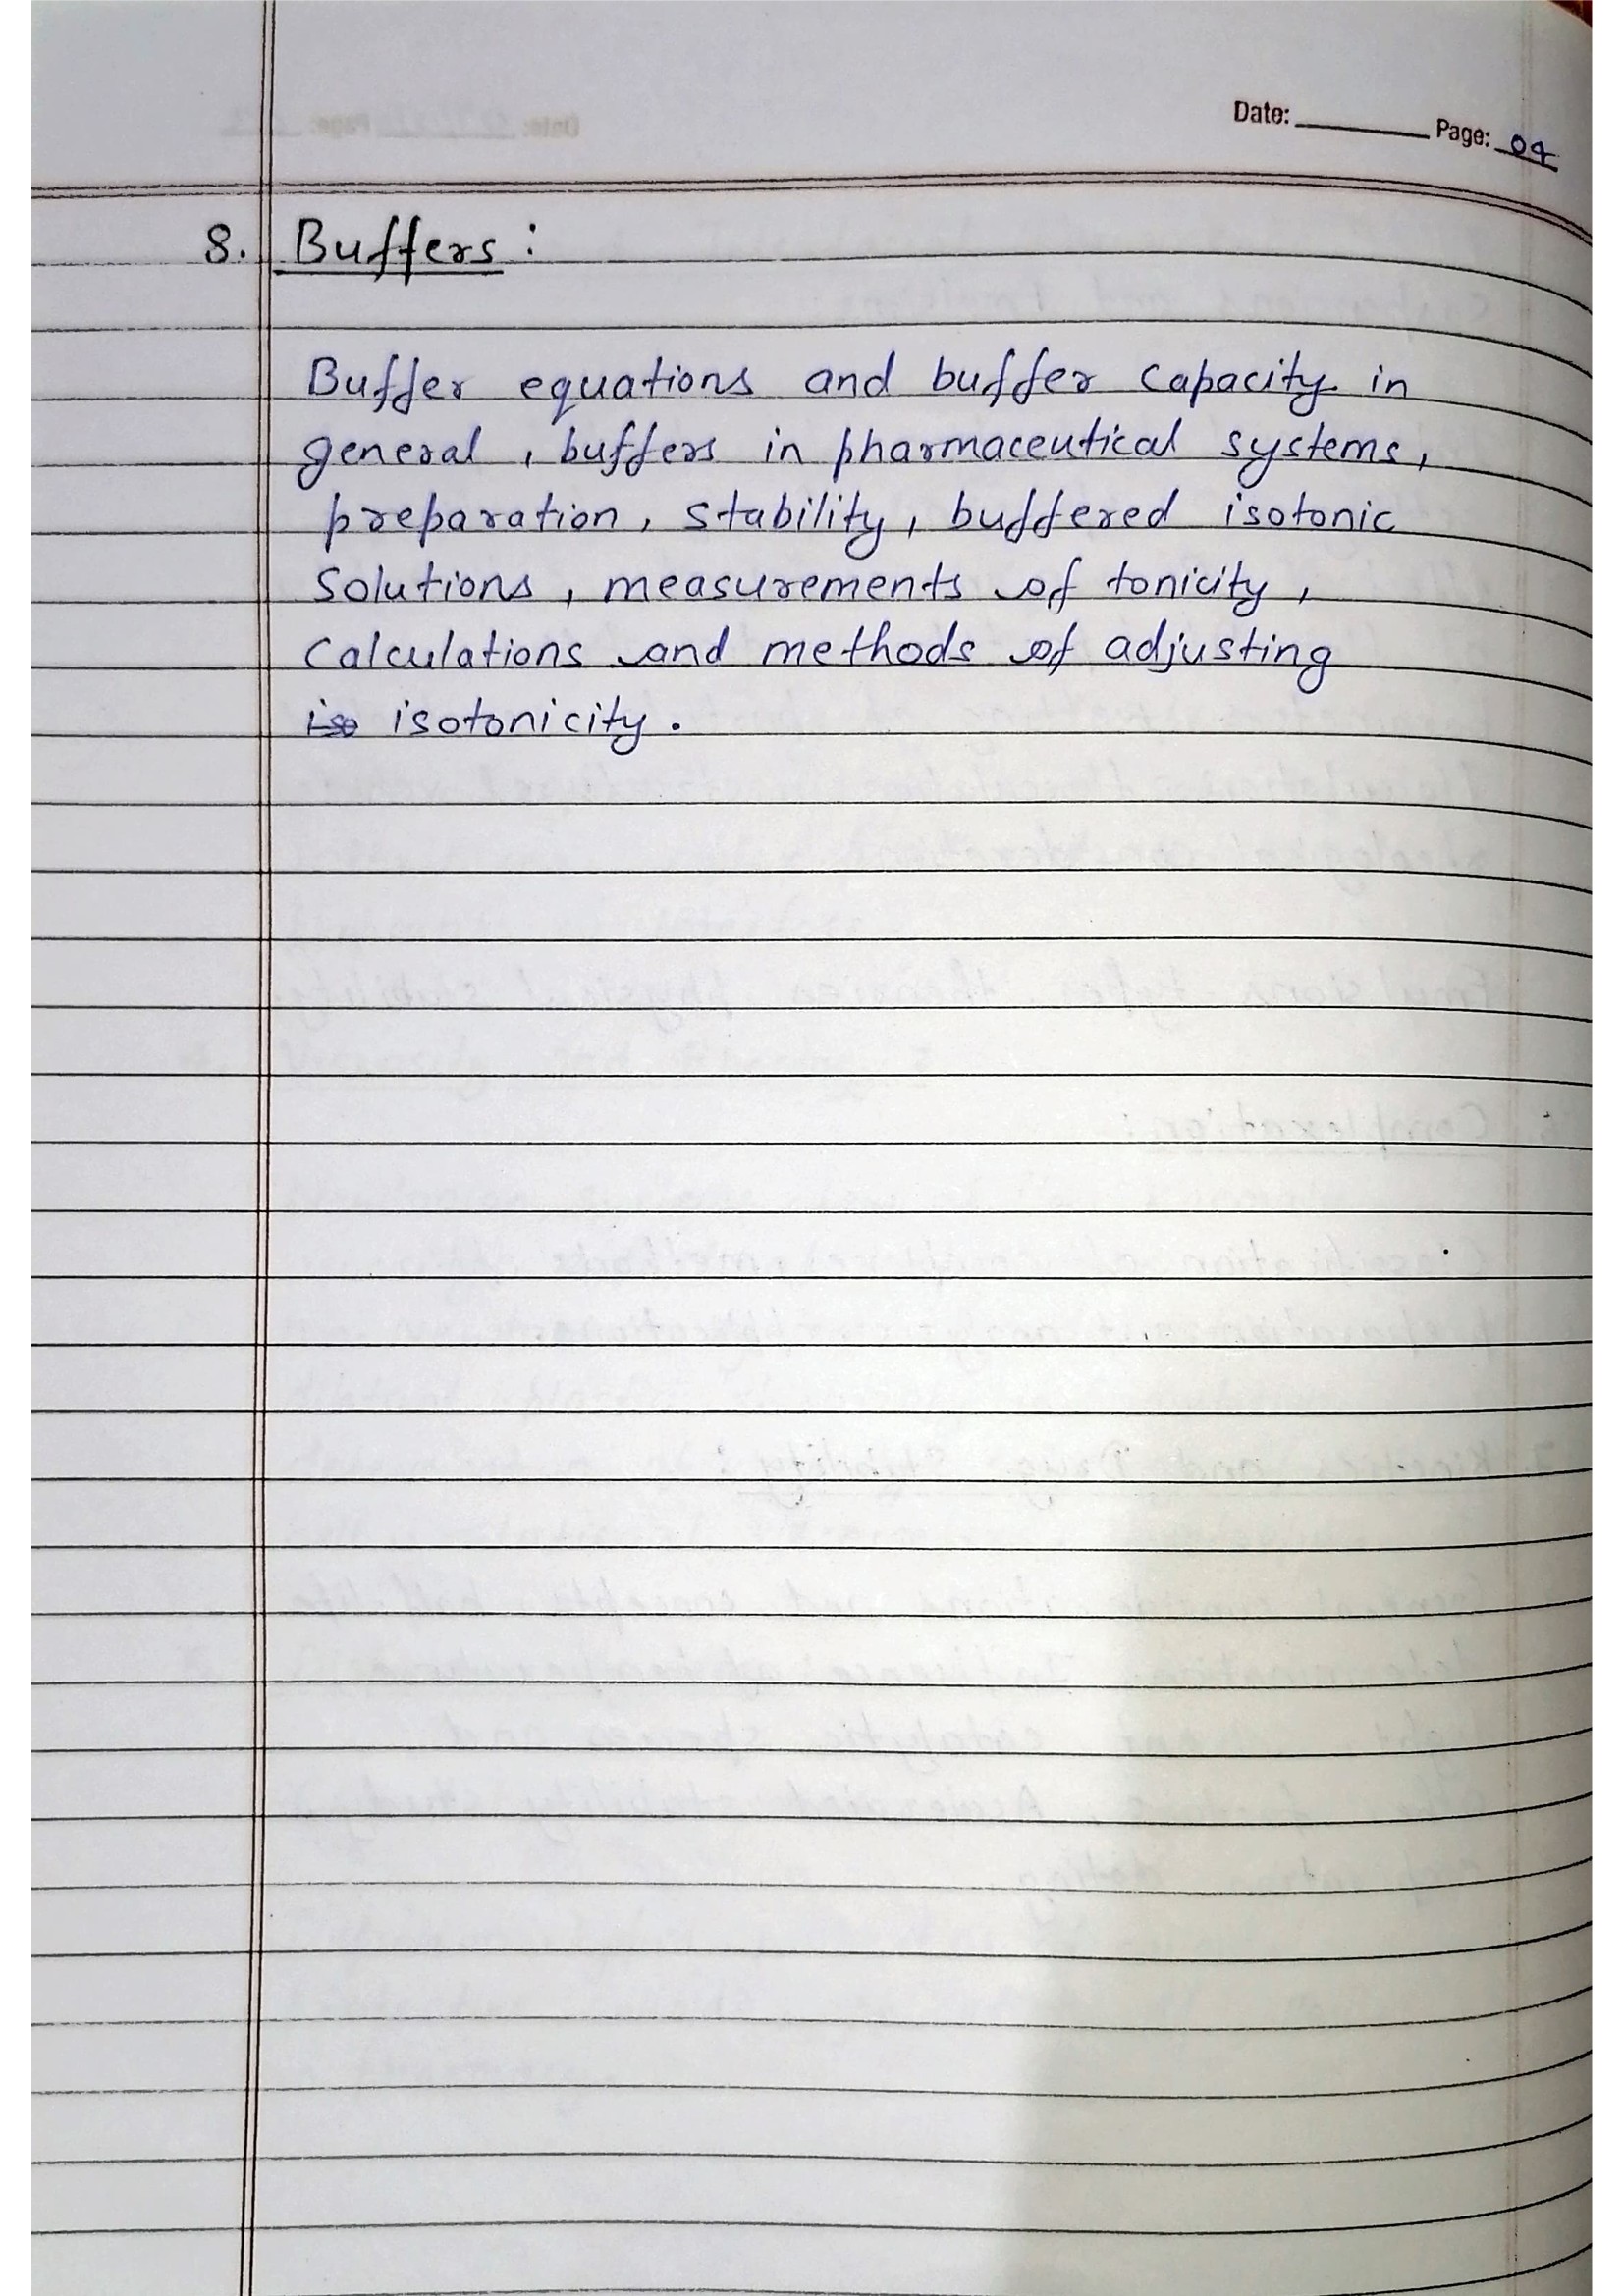 Date: Page: 04
8. Buffers :
Buffer equations and buffer capacity in
general, buffers in pharmaceutical systems,
preparation, stability, buffered isotonic
solutions, measurements of tonicity,
calculations and methods of adjusting
iso isotonicity.